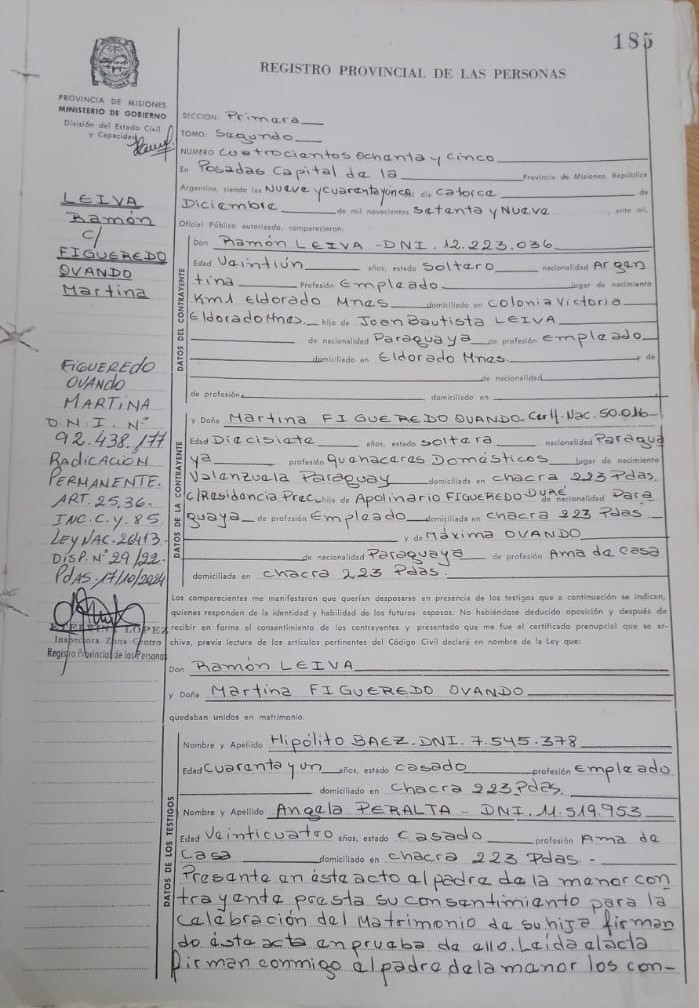 185
REGISTRO PROVINCIAL DE LAS PERSONAS
PROVINCIA DE MISIONES
MINISTERIO DE GOBIERNO
División del Estado Civil
y Capacidad
LEIVA
Ramón
c/
FIGUEREDO
OVANDO
Martina
FIGUEREDO
OVANDO
MARTINA
D.N.I. Nº
92.438.177
RADICACIÓN
PERMANENTE.
ART. 25,36.
INC. C. y. 85
LEY NAC. 26413.
DISP. Nº 29/22.
PdAS, 17/10/2024
LOPEZ
Inspectora Zona Centro
Registro Provincial de las Personas
SECCION: Primera
TOMO: Segundo
NUMERO Cuatrocientos Ochenta y Cinco
En Posadas Capital de la Provincia de Misiones, República
Argentina, siendo las Nueve y cuarenta y cinco; día Catorce de
Diciembre de mil novecientos Setenta y Nueve ante mí,
Oficial Público autorizado, comparecieron:
DATOS DEL CONTRAYENTE
Don Ramón LEIVA - DNI. 12.223.036
Edad Veintiún años, estado Soltero nacionalidad Argen
tina Profesión Empleado lugar de nacimiento
Km1 Eldorado Mnes domiciliado en Colonia Victoria
Eldorado Mnes. hijo de Juan Bautista LEIVA
de nacionalidad Paraguaya de profesión empleado
domiciliado en Eldorado Mnes. y de
de nacionalidad
de profesión domiciliado en
DATOS DE LA CONTRAYENTE
y Doña Martina FIGUEREDO OVANDO. Cert. Nac. 50.016
Edad Diecisiete años, estado soltera nacionalidad Paragua
ya profesión Quehaceres Domésticos lugar de nacimiento
Valenzuela Paraguay domiciliado en chacra 223 Pdas.
C/Residencia Prec. hija de Apolinario FIGUEREDO DURE de nacionalidad Para
guaya de profesión Empleado domiciliado en chacra 223 Pdas.
y de Máxima OVANDO
de nacionalidad Paraguaya de profesión Ama de casa
domiciliado en chacra 223 Pdas.
Los comparecientes me manifestaron que querían desposarse en presencia de los testigos que a continuación se indican,
quienes responden de la identidad y habilidad de los futuros esposos. No habiéndose deducido oposición y después de
recibir en forma el consentimiento de los contrayentes y presentado que me fue el certificado prenupcial que se ar-
chiva, previa lectura de los artículos pertinentes del Código Civil declaré en nombre de la Ley que:
Don Ramón LEIVA
y Doña Martina FIGUEREDO OVANDO
quedaban unidos en matrimonio.
DATOS DE LOS TESTIGOS
Nombre y Apellido Hipólito BAEZ. DNI. 7.545.378
Edad Cuarenta y un años, estado casado profesión Empleado
domiciliado en Chacra 223 Pdas.
Nombre y Apellido Angela PERALTA - DNI. 11.519.953
Edad Veinticuatro años, estado Casado profesión Ama de
Casa domiciliado en Chacra 223 Pdas. -
Presente en éste acto el padre de la menor con
trayente presta su consentimiento para la
Celebración del Matrimonio de su hija firman
do ésta acta en prueba de ello. Leída el acta
firman conmigo el padre de la menor los con-